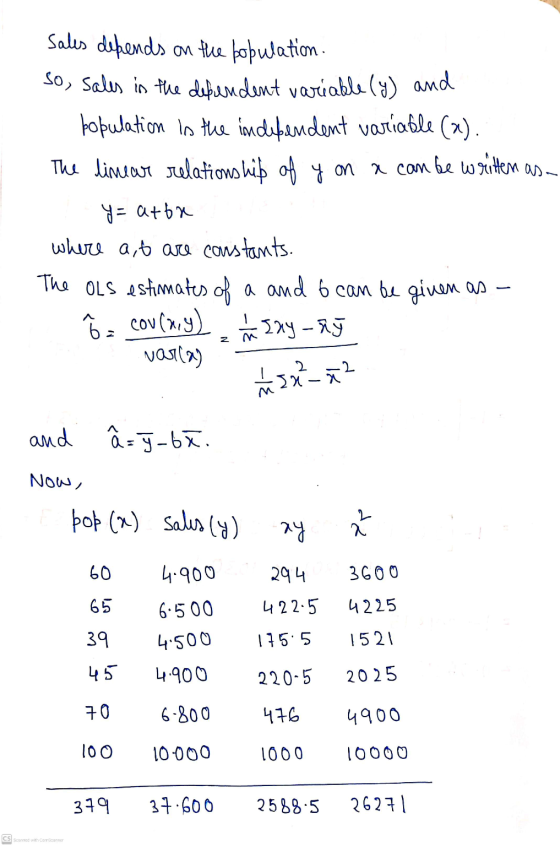 Sales depends on the population.
So, Sales is the dependent variable (y) and
population is the independent variable (x).
The linear relationship of y on x can be written as-
y = a+bx
where a,b are constants.
The OLS estimates of a and b can be given as –
b̂ = cov(x,y) / var(x) = (1/n Σxy – x̄ȳ) / (1/n Σx² – x̄²)
and â = ȳ – bx̄.
Now,
pop (x) Sales (y) xy x²
60 4.900 294 3600
65 6.500 422.5 4225
39 4.500 175.5 1521
45 4.900 220.5 2025
70 6.800 476 4900
100 10.000 1000 10000
379 37.600 2588.5 26271
CS Scanned with CamScanner